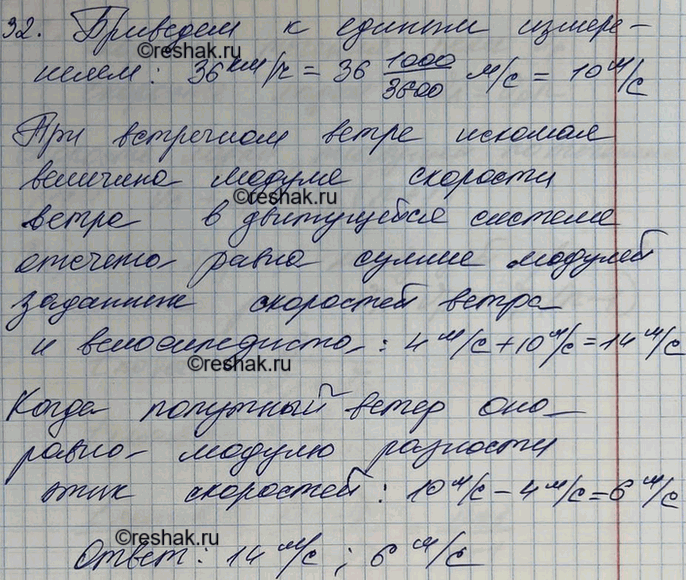 32. Приведем к единым измере-
©reshak.ru
ниям: 36 км/ч = 36 1000/3600 м/с = 10 м/с
При встречном ветре искомая
величина модуля скорости
©reshak.ru
ветра в движущейся системе
отсчета равна сумме модулей
заданных скоростей ветра
и велосипедиста: 4 м/с + 10 м/с = 14 м/с
©reshak.ru
Когда попутный ветер она
равна модулю разности
этих скоростей: 10 м/с – 4 м/с = 6 м/с
©reshak.ru
Ответ: 14 м/с ; 6 м/с